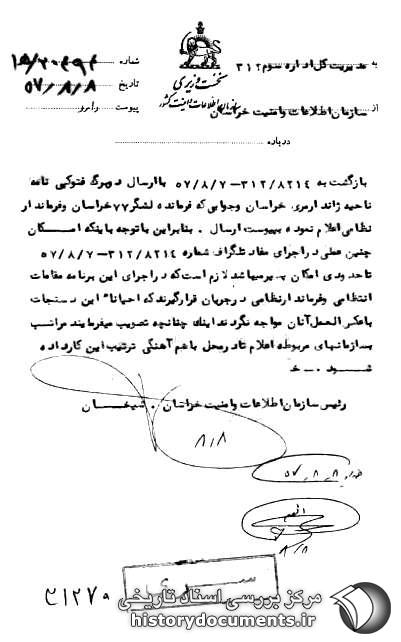 شماره ۱۵/۲۰۶۹۴
تاریخ ۵۷/۸/۸
پیوست دارد
نخست وزیری
سازمان اطلاعات و امنیت کشور
به مدیریت کل اداره سوم ۳۱۲
از سازمان اطلاعات و امنیت خراسان
درباره
بازگشت به ۳۱۲/۸۲۱۴–۵۷/۸/۷ با ارسال دو برگ فتوکپی نامه
ناحیه ژاندارمری خراسان و جوابی که فرمانده لشگر ۷۷ خراسان و فرماندار
نظامی اعلام نموده به پیوست ارسال . بنابراین با توجه باینکه امکان
چنین عملی در اجرای مفاد تلگراف شماره ۳۱۲/۸۲۱۴–۵۷/۸/۷
تا حدودی امکان پذیر میباشد لازم است که در اجرای این برنامه مقامات
انتظامی و فرماندار نظامی در جریان قرار گیرند که احیانا" این دستجات
با عکس العمل آنان مواجه نگردند اینك چنانچه تصویب میفرمایند مراتب
بسازمانهای مربوطه اعلام تا در محل با هم آهنگی ترتیب این کار داده
شود . خ
رئیس سازمان اطلاعات و امنیت خراسان . شیخان
۸/۸
۵۷/۸/۸
۸/۸
۴۱۲۷۰
مرکز بررسی اسناد تاریخی
historydocuments.ir